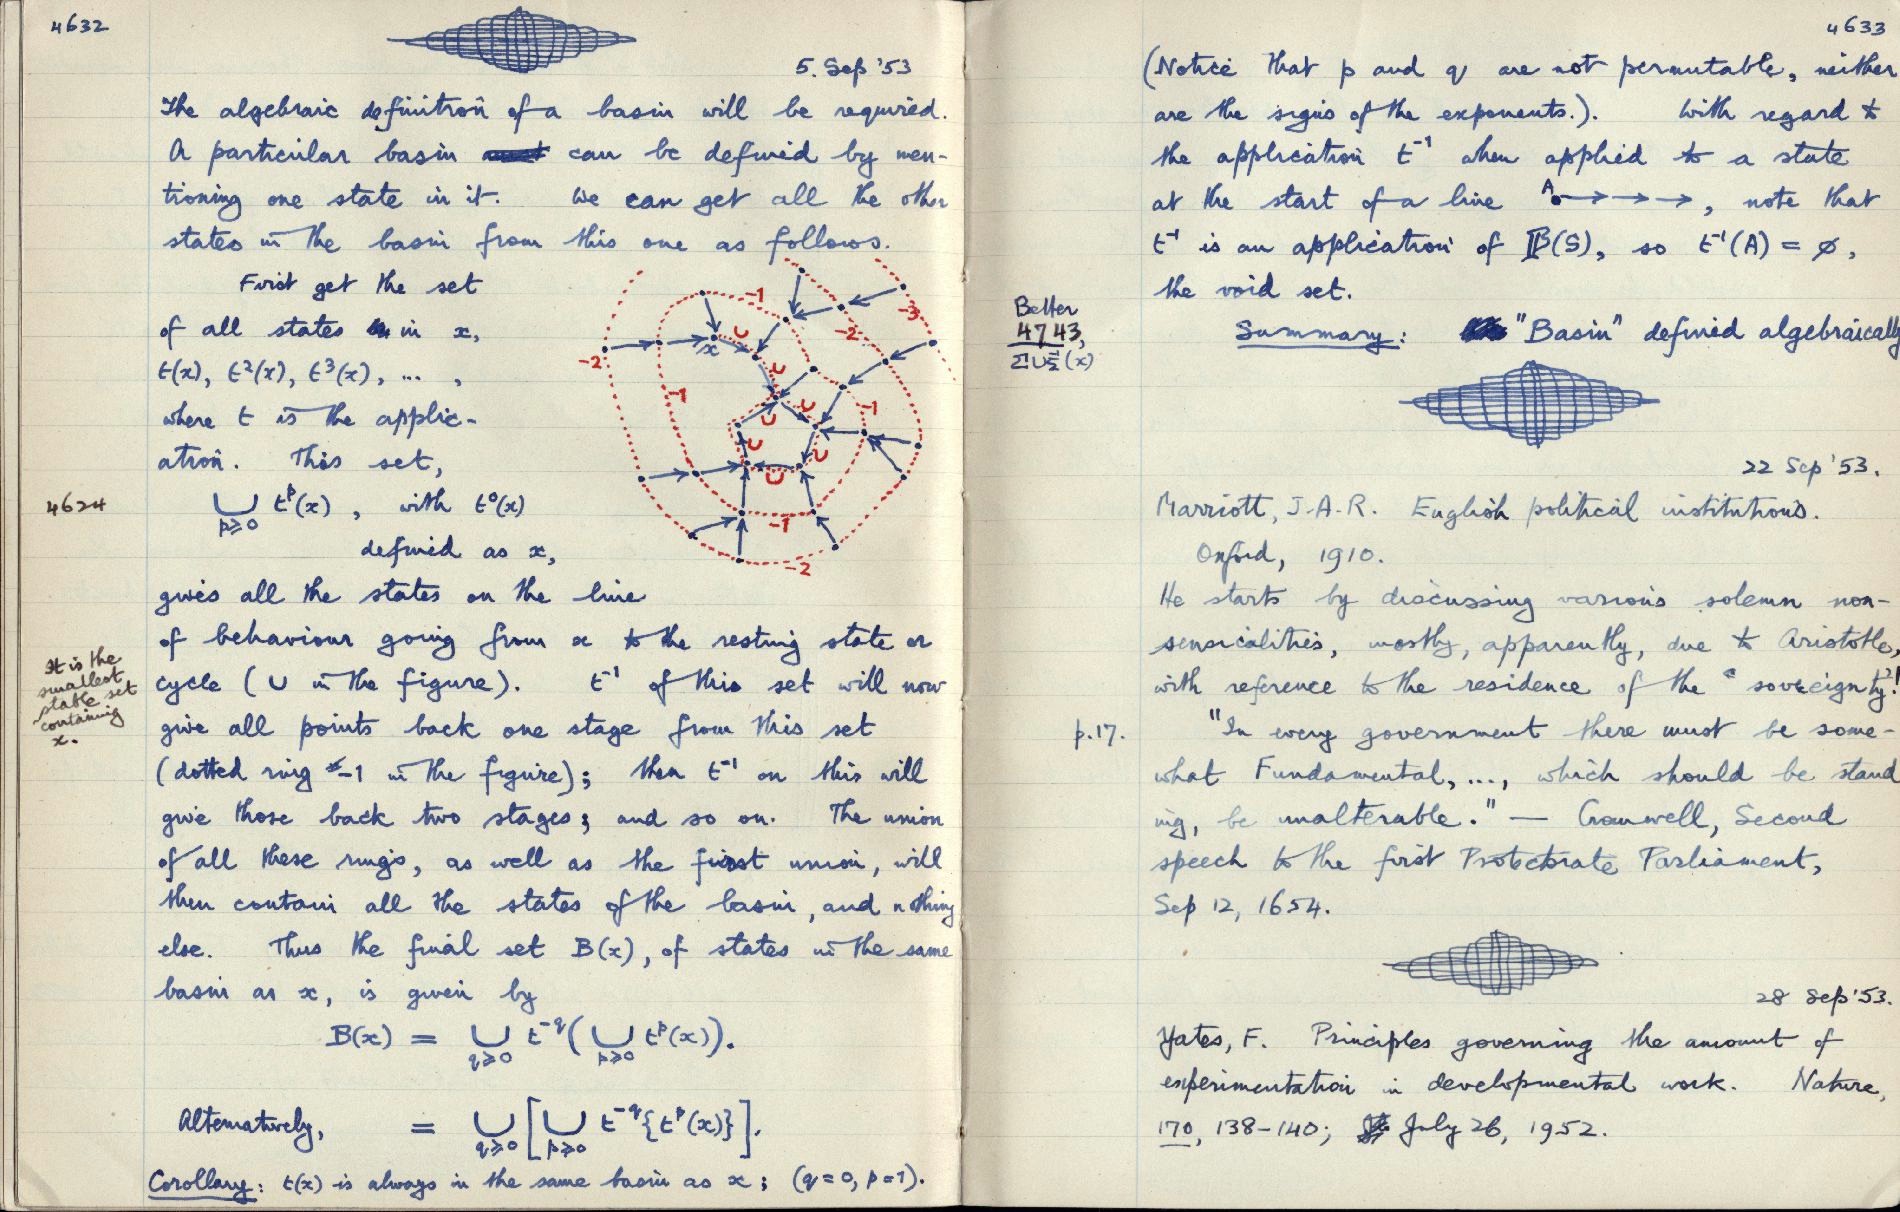 4632
5. Sep '53
The algebraic definition of a basin will be required.
A particular basin can be defined by men-
tioning one state in it. We can get all the other
states in the basin from this one as follows.
First get the set
of all states in x,
t(x), t²(x), t³(x), ... ,
where t is the applic-
ation. This set,
4624
⋃ tᵖ(x) , with t⁰(x)
p⩾0
defined as x,
gives all the states on the line
of behaviour going from x to the resting state or
cycle (∪ in the figure). t⁻¹ of this set will now
give all points back one stage from this set
(dotted ring -1 in the figure); then t⁻¹ on this will
give those back two stages; and so on. The union
of all these rings, as well as the first union, will
then contain all the states of the basin, and nothing
else. Thus the final set B(x), of states in the same
basin as x, is given by
B(x) = ⋃ t⁻q(⋃ tᵖ(x)).
q⩾0 p⩾0
Alternatively, = ⋃ [⋃ t⁻q{tᵖ(x)}].
q⩾0 p⩾0
Corollary: t(x) is always in the same basin as x; (q=0, p=1).
It is the
smallest
stable set
containing
x.
-1
-2
-3
-2
x
∪
∪
-1
∪
-1
∪
∪
∪
∪
-1
-2
4633
(Notice that p and q are not permutable, neither
are the signs of the exponents.). With regard to
the application t⁻¹ when applied to a state
at the start of a line A •→→→→, note that
t⁻¹ is an application of 𝔹(S), so t⁻¹(A) = ∅,
the void set.
Better
4743,
Summary: "Basin" defined algebraically
22 Sep '53.
Marriott, J.A.R. English political institutions.
Oxford, 1910.
He starts by discussing various solemn non-
sensicalities, mostly, apparently, due to Aristotle,
with reference to the residence of the "sovereignty"!
p.17.
"In every government there must be some-
what Fundamental, ..., which should be stand
ing, be unalterable." — Cromwell, Second
speech to the first Protectorate Parliament,
Sep 12, 1654.
28 Sep '53.
Yates, F. Principles governing the amount of
experimentation in developmental work. Nature,
170, 138-140; July 26, 1952.